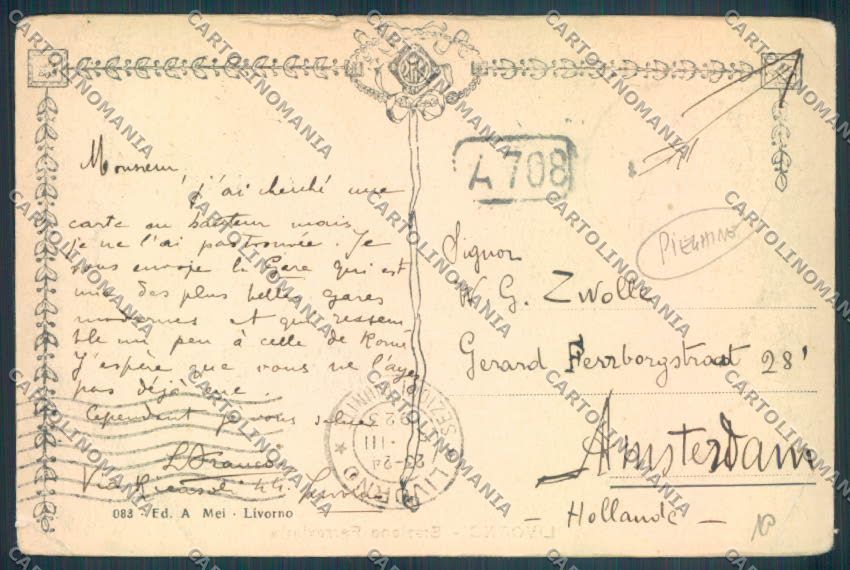 Monsieur,
j'ai cherché une
carte en hauteur mais
je ne l'ai pas trouvée. Je
vous envoie la Gare qui est
une des plus belles gares
modernes et qui ressem
ble un peu à celle de Rome
J'espère que vous ne l'ayez
pas déjà eue..
Cependant je vous salue
L. Franco
Via 44. Livorno
083 - Ed. A Mei - Livorno
A 708
PIEGHINA
Signor
W. G. Zwolle
Gerard 28'
Amsterdam
- Hollande -
LIVORNO
23-24
III
923
LIVORNO - Stazione Ferroviaria
CARTOLINOMANIA